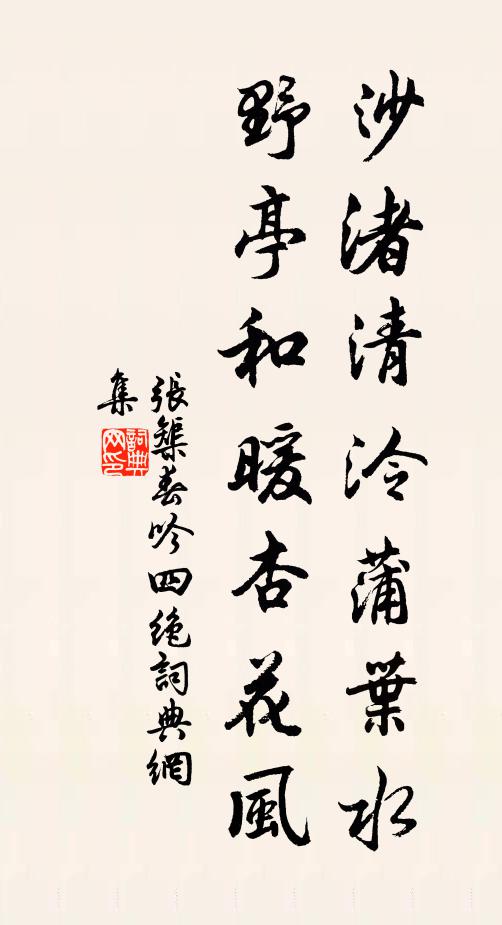 沙渚清泠蒲葉水
野亭和暖杏花風
張榘春吟四絶詞典網
集
詞典網印